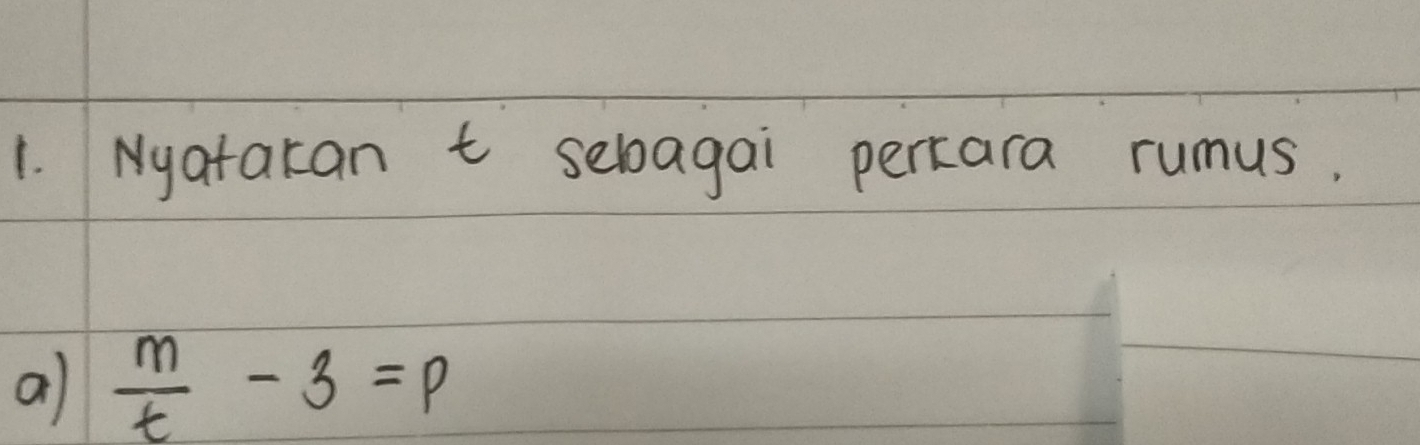 1. Nyatakan t sebagai perkara rumus.
a) m/t - 3 = p